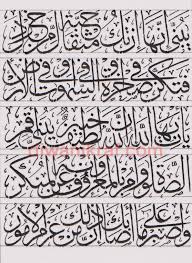 يبنى إنها إن تك مثقال حبة من خردل
فتكن فى صخرة أو فى السموت أو فى الأر
ض يأت بها الله إن الله لطيف خبير يبنى أقم
الصلوة وأمر بالمعروف وانه عن المنكر
واصبر على ما أصابك إن ذلك من عزم الأمور